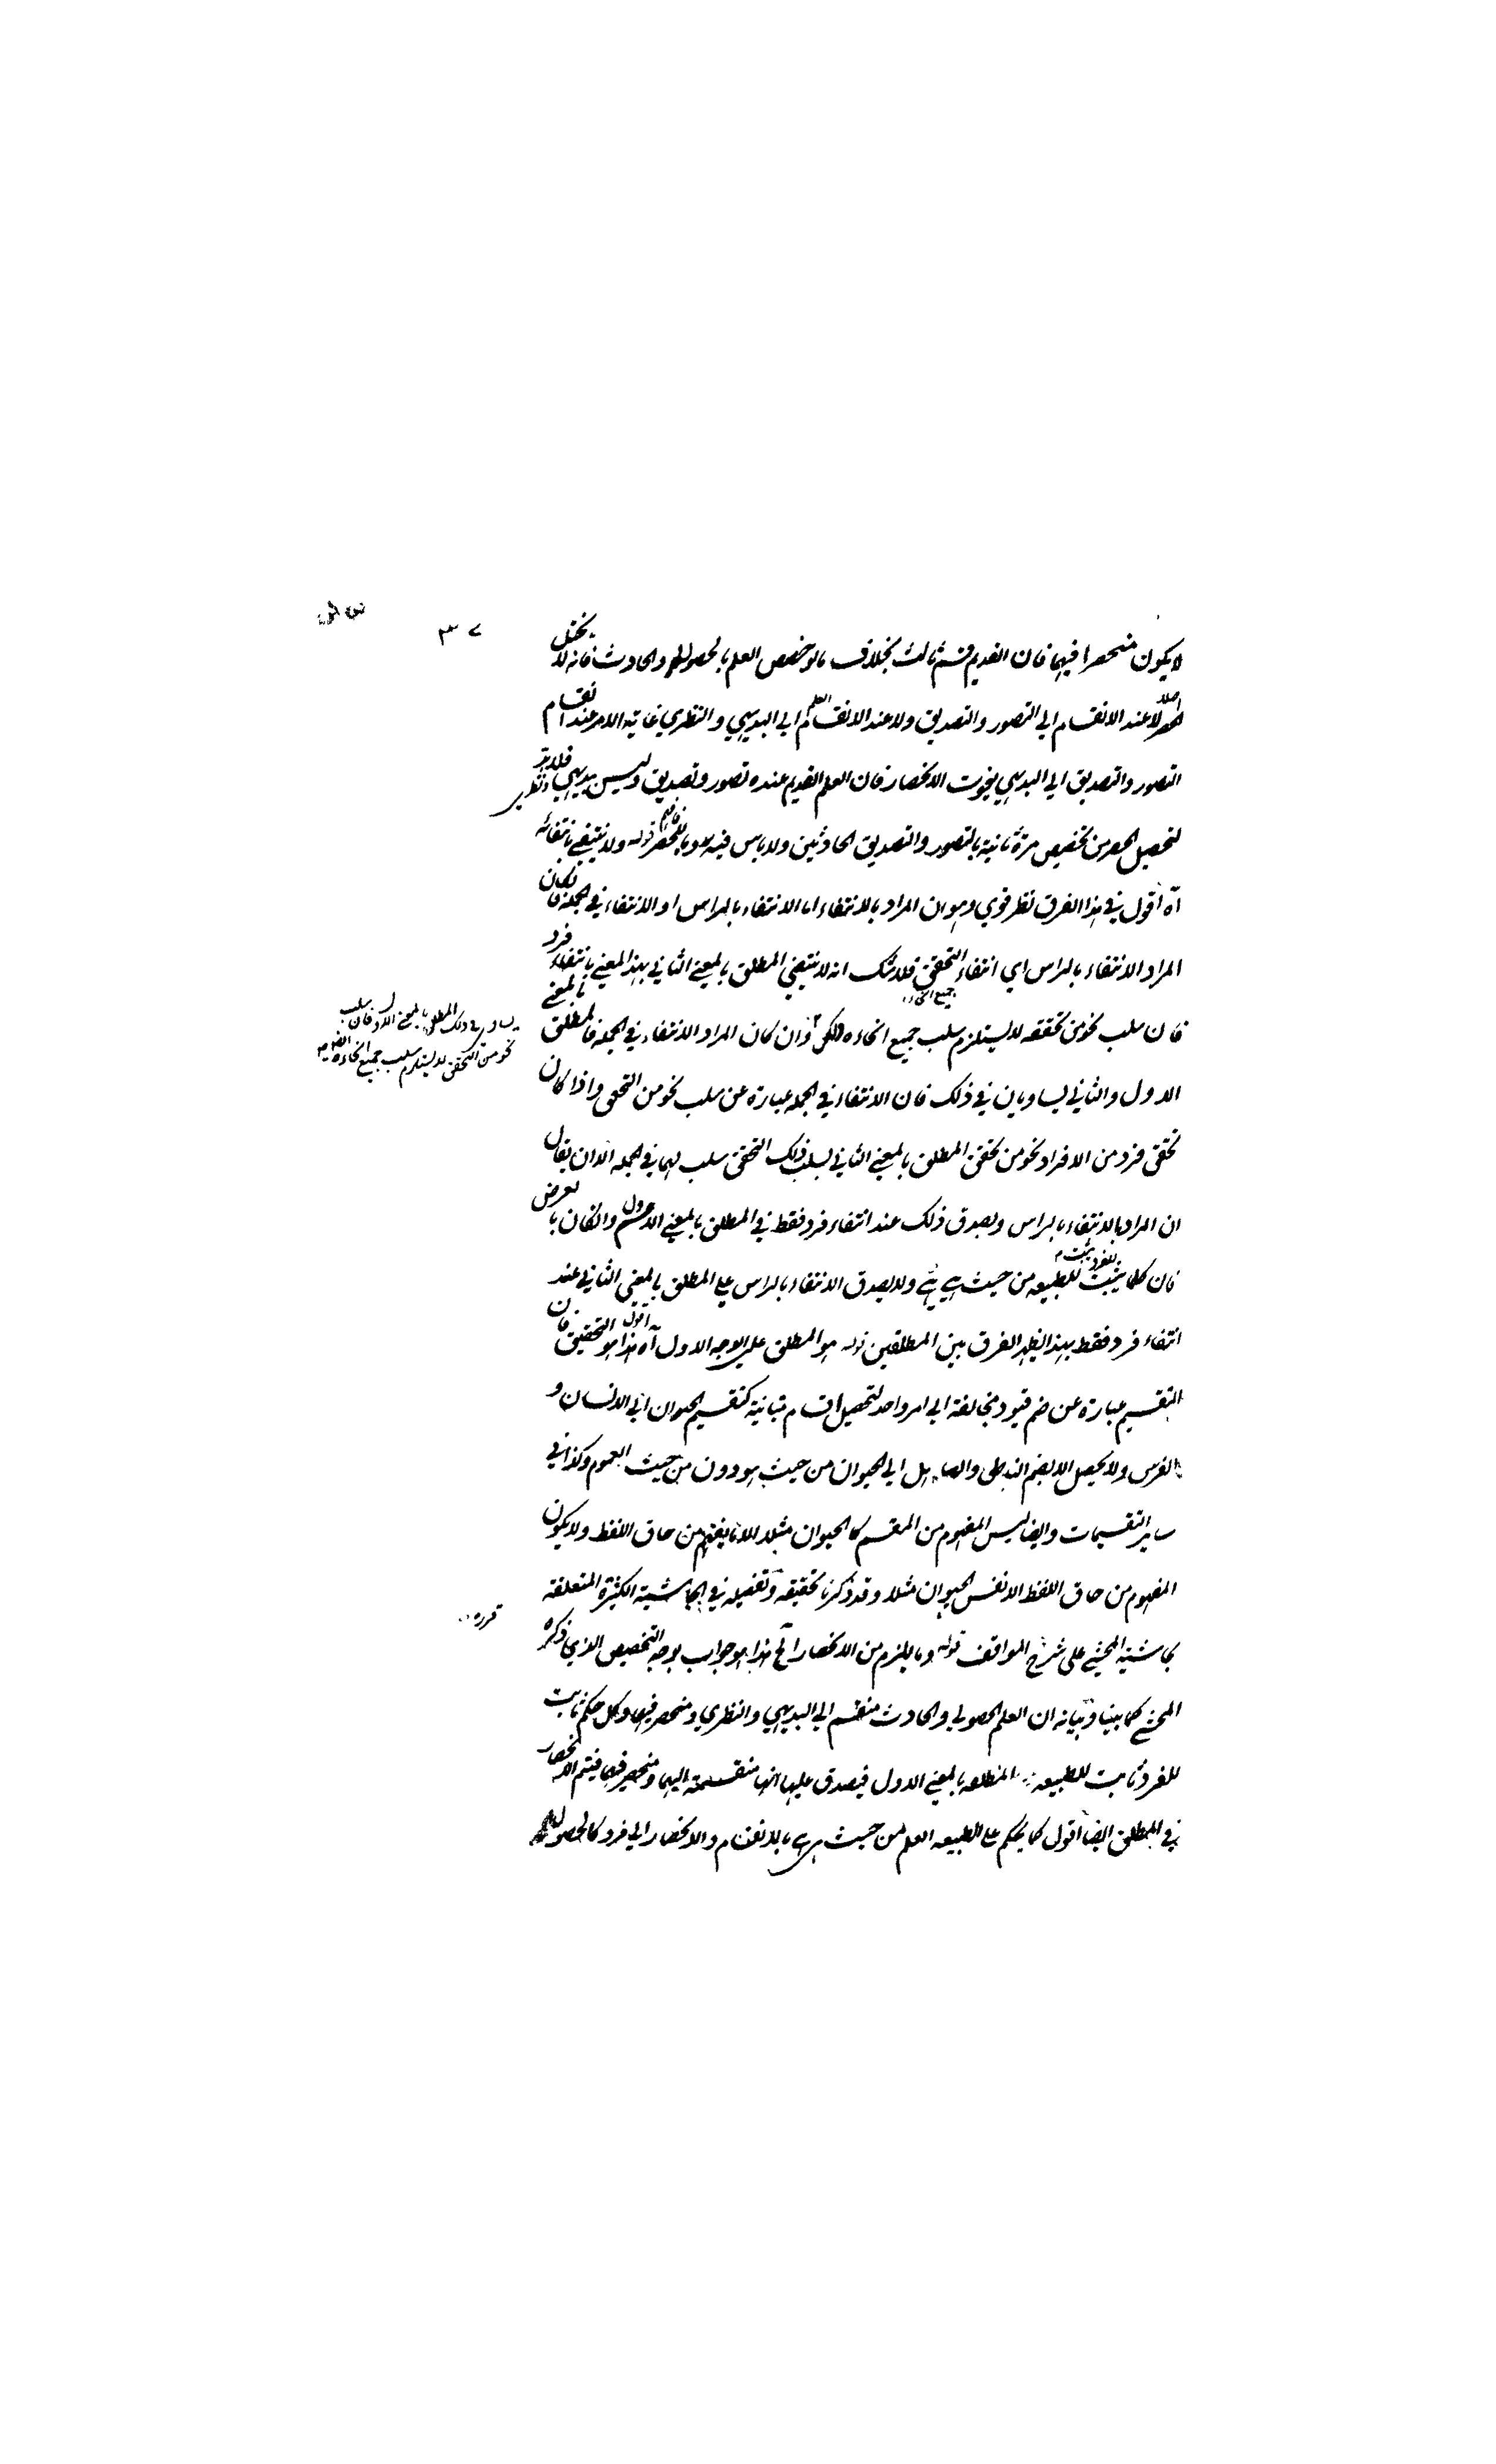 ٣٧
لا يكون منحصرا فيهما فان القديم قسم ثالث بخلاف ما لو خصص العلم بالحصولي والحادث فانه لا يختل
الحصر لا عند الانقسام الي التصور والتصديق ولا عند الانقسام الي البديهي والنظري غاية الامر عند انقسام
التصور والتصديق الي البديهي يفوت الانحصار فان العلم القديم عنده تصور وتصديق وليس ببديهي ونظري فلا بد
لتحصيل الحصر من تخصيص مرة ثانية بالتصور والتصديق الحادثين ولا باس فيه قوله ولا ينتفي بانتفائه
آه اقول في هذا الفرق نظر قوي وهو ان المراد بالانتفاء اما الانتفاء بالراس او الانتفاء في الجملة فان كان
المراد الانتفاء بالراس اي انتفاء جميع التحقق فلا شك انه لا ينتفي المطلق بالمعني الثاني بهذا المعني بانتفاء فرد
فان سلب نحو من تحققه لا يستلزم سلب جميع انحاءه وان كان المراد الانتفاء في الجملة فالمطلق بالمعني
الاول والثاني يساويان في ذلك فان الانتفاء في الجملة عبارة عن سلب نحو من التحقق واذا كان
تحقق فرد من الافراد نحو من تحقق المطلق بالمعني الثاني فسلب ذلك التحقق سلب لهما في الجملة الا ان يقال
ان المراد بالانتفاء بالراس ويصدق ذلك عند انتفاء فرد فقط في المطلق بالمعني الاول وان كان بالعرض
فان كلما يثبت للفرد يثبت للطبيعة من حيث هي هي ولا يصدق الانتفاء بالراس علي المطلق بالمعني الثاني عند
انتفاء فرد فقط بهذا يظهر الفرق بين المطلقين قوله هو المطلق علي الوجه الاول آه اقول هذا هو التحقيق فان
التقسيم عبارة عن ضم قيود متخالفة الي امر واحد لتحصيل اقسام متباينة كتقسيم الحيوان الي الانسان و
الفرس ولا يحصل الا بضم الناطق والصاهل الي الحيوان من حيث هو دون من حيث العموم وكذا في
ساير التقسيمات وايضا ليس المفهوم من المقسم كالحيوان مثلا الا ما يفهم من حاق اللفظ ولا يكون
المفهوم من حاق اللفظ الا نفس الحيوان مثلا وقد ذكرنا تحقيقه وتفصيله في الحاشية الكثيرة المتعلقة
بحاشية المحشي على شرح المواقف قوله وما يلزم من الانحصار الخ هذا جواب بوجه التخصيص الذي ذكره
المحشي كما بينا وبيانه ان العلم الحصولي والحادث منقسم الي البديهي والنظري ومنحصر فيهما وكل حكم ثابت
للفرد ثابت للطبيعة المطلقة بالمعني الاول فيصدق عليها انها منقسمة اليهما ومنحصر فيهما فيتم الانحصار
في المطلق ايضا اقول كما يحكم علي الطبيعة العلم من حيث هي هي بالانقسام والانحصار الي فرد كالحصولي
يساوي في ذلك المطلق بالمعني الاول فان سلب
نحو من التحقق لا يستلزم سلب جميع انحاءه ايضا